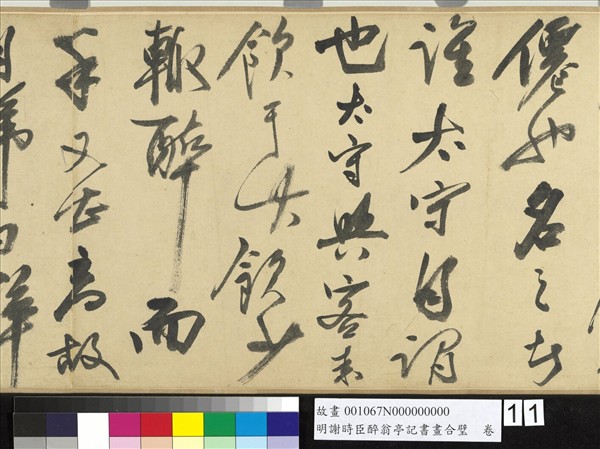 僊也名之者
誰太守自謂
也太守與客来
飲于此飲少
輒醉而
年又最高故
自號曰醉
故畫 001067N000000000
明謝時臣醉翁亭記書畫合璧 卷
11